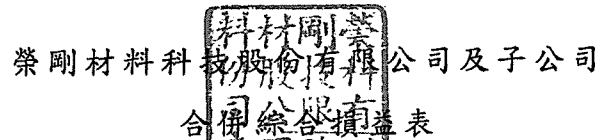 榮剛材料科技股份有限公司及子公司
合併綜合損益表